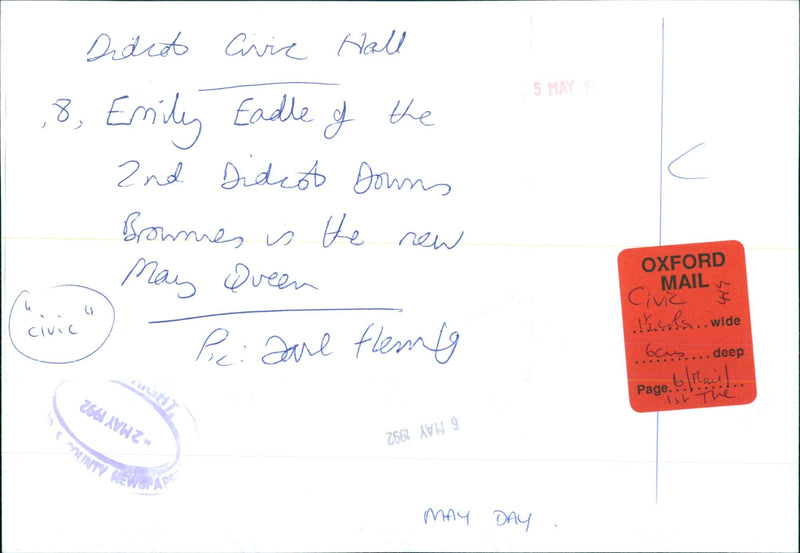 Didcot Civic Hall
5 MAY 19
,8, Emily Eadle of the
2nd Didcot Downs
Brownies is the new
May Queen
"... civic"
Pic: Dave Fleming
OXFORD
MAIL
Civic
wide
6cms deep
Page 6/Mail/
1st The
COPYRIGHT
2 MAY 1992
& COUNTY NEWSPAPE
6 MAY 1992
MAY DAY.